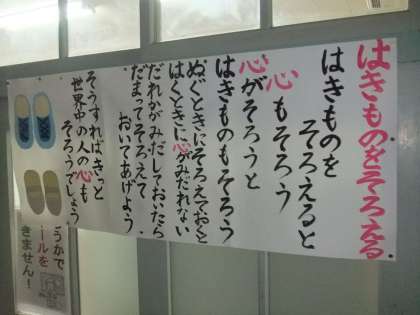 はきものをそろえる
はきものを
そろえると
心もそろう
心がそろうと
はきものもそろう
ぬぐときにそろえておくと
はくときに心がみだれない
だれかがみだしておいたら
だまってそろえて
おいてあげよう
そうすればきっと
世界中の人の心も
そろうでしょう
うかで
ールを
きません!